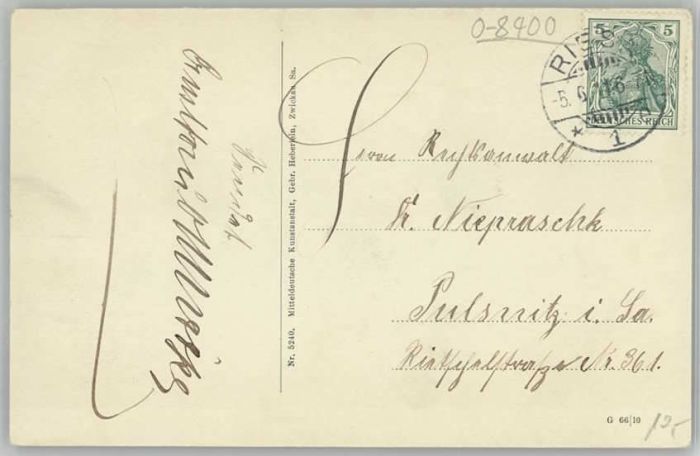 0-8400
RIESA
-5.6.
1
5 5
DEUTSCHES REICH
Herrn Rechtsanwalt
Dr. Niepraschk
Pulsnitz i. Sa.
Rietschelstraße Nr. 361.
Nr. 5240. Mitteldeutsche Kunstanstalt, Gebr. Heberlein, Zwickau Sa.
G 66|10
12,-